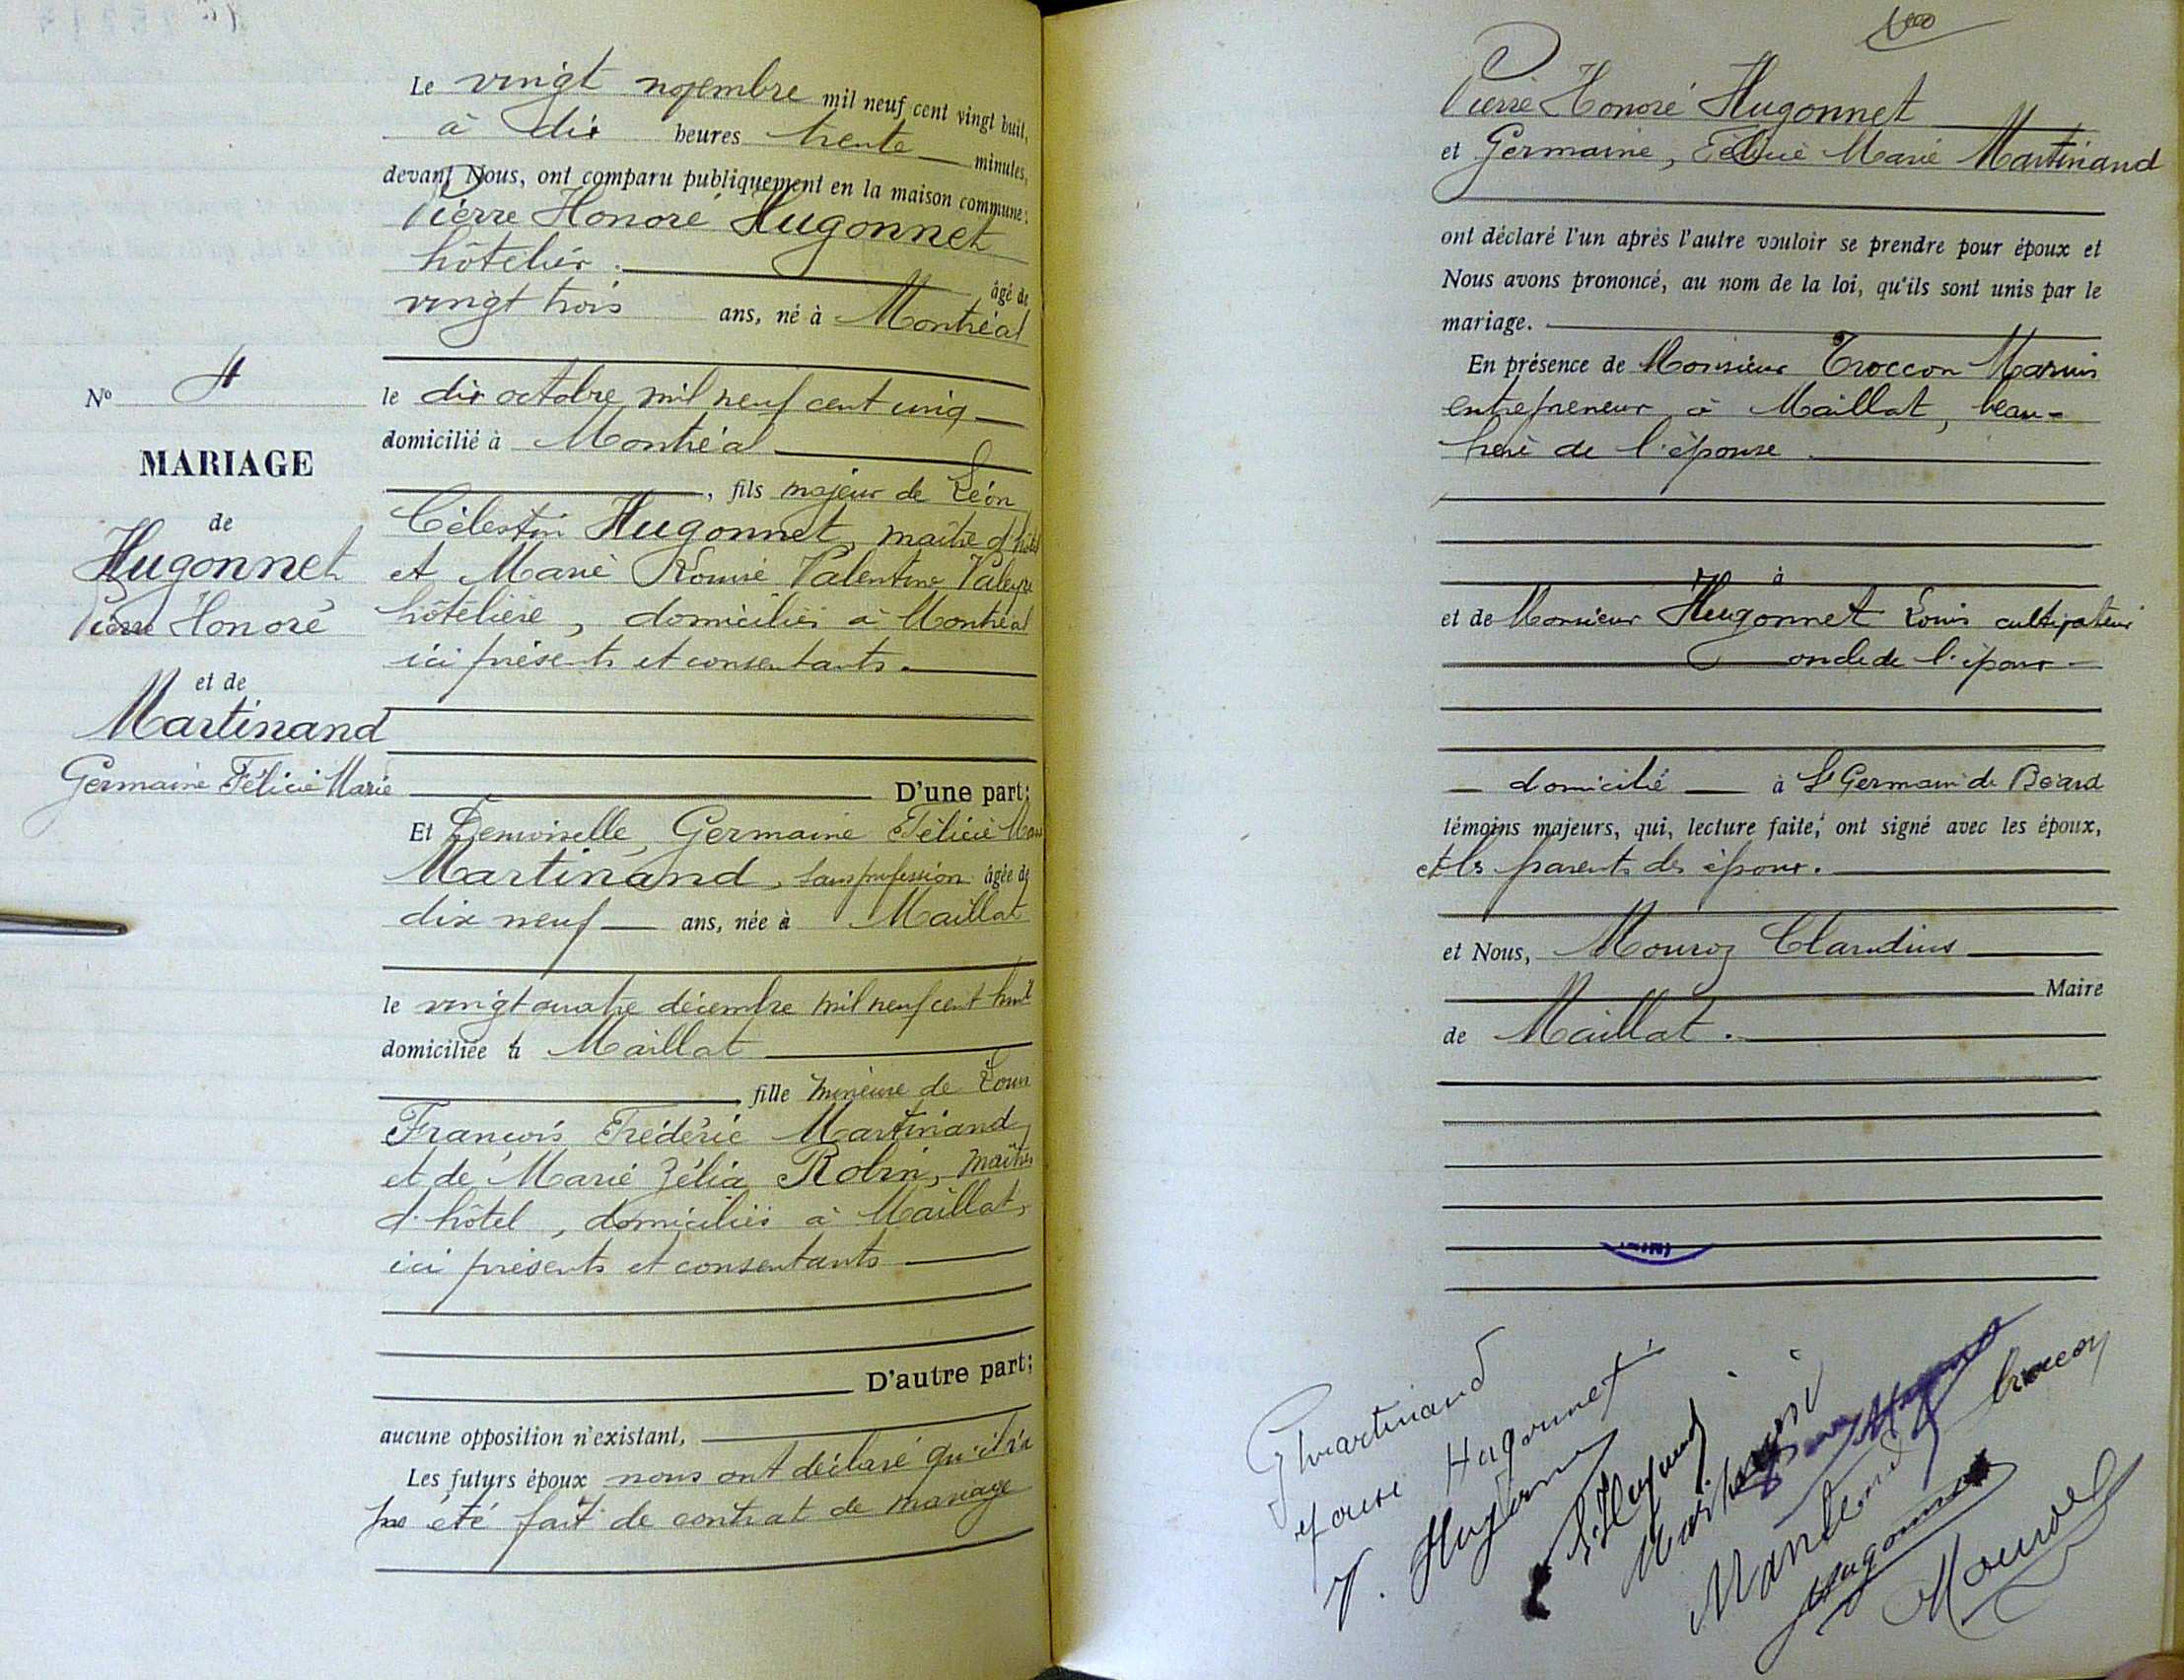 Nº 4
MARIAGE
de
Hugonnet
Pierre Honoré
et de
Martinand
Germaine Félicie Marie
Le vingt novembre mil neuf cent vingt huit,
à dix heures trente minutes,
devant Nous, ont comparu publiquement en la maison commune:
Pierre Honoré Hugonnet
hôtelier. âgé de
vingt trois ans, né à Montréal
le dix octobre mil neuf cent cinq
domicilié à Montréal
, fils majeur de Léon
Célestin Hugonnet, maître d'hôtel
et Marie Louise Valentine
hôtelière, domiciliés à Montréal
ici présents et consentants.
D'une part;
Et Demoiselle, Germaine Félicie Marie
Martinand, sans profession âgée de
dix neuf ans, née à Maillat
le vingt quatre décembre mil neuf cent huit
domiciliée à Maillat
, fille mineure de Louis
François Frédéric Martinand,
et de Marie Zélia Robin, maîtres
d'hôtel, domiciliés à Maillat,
ici présents et consentants
D'autre part;
aucune opposition n'existant,
Les futurs époux nous ont déclaré qu'il n'a
pas été fait de contrat de mariage
Pierre Honoré Hugonnet
et Germaine, Félicie Marie Martinand
ont déclaré l'un après l'autre vouloir se prendre pour époux et
Nous avons prononcé, au nom de la loi, qu'ils sont unis par le
mariage.
En présence de Monsieur Troccon Marius
entrepreneur à Maillat, beau-
frère de l'épouse
à
et de Monsieur Hugonnet Louis cultivateur
oncle de l'époux
domicilié à St Germain de Béard
témoins majeurs, qui, lecture faite, ont signé avec les époux,
et les parents des époux.
et Nous, Mouroz Claudius
Maire
de Maillat.
G Martinand
épouse Hugonnet
Hugonnet
Martinand
Troccon
Hugonnet
Mouroz